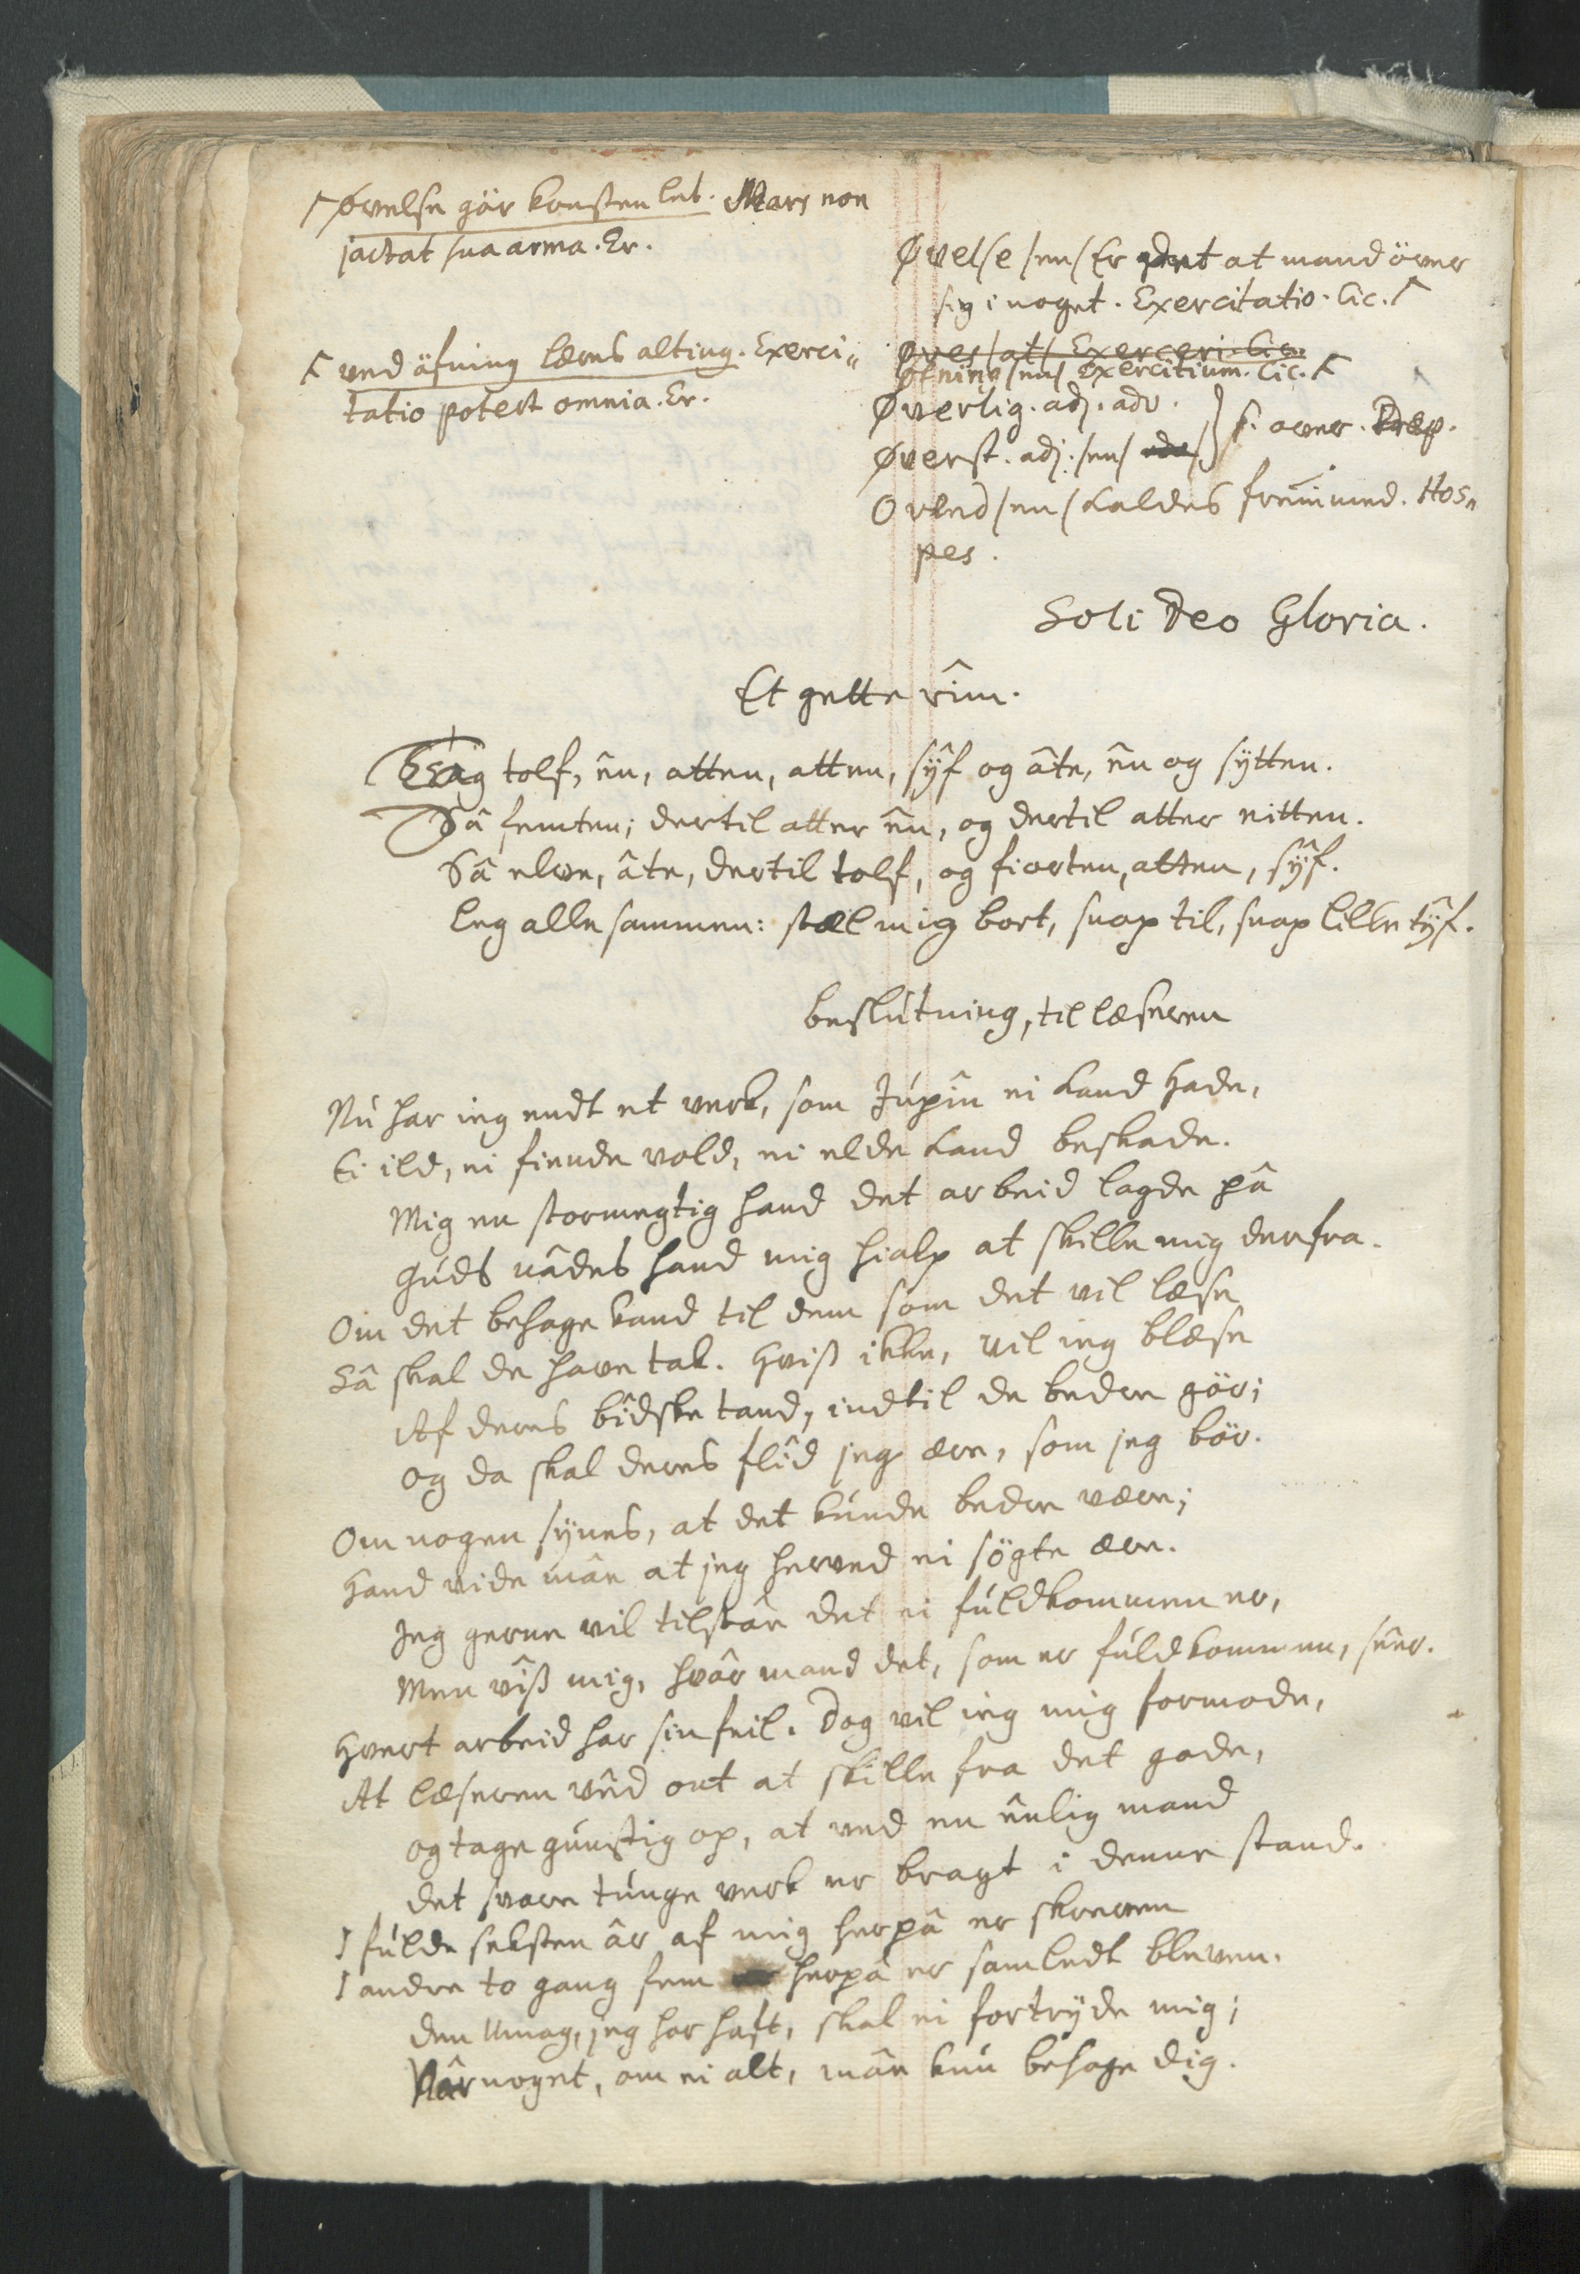 ↑ øvelse gör konsten let. Mars non
jactat sua arma. Er.
↑ ved öfning læres alting. Exerci„
tatio potest omnia. Er.
Øvelse /en/ Er det at mand över
sig i noget. Exercitatio. Cic. ↑
Øves /at/ Exerceri. Cic.
öfning /en/ Exercitium. Cic. ↑
Øverlig. adj. adv.
Øverst. adj. /en/ } s. over. Præp.
Øvled /en/ kaldes fremmed. Hos„
pes.
Soli Deo Gloria.
Et gette rîm.
tag tolf, ên, atten, atten, sÿf og âte, ên og sÿtten.
Så femten; dertil atter ên, og dertil atter nitten.
Så elve, âte, dertil tolf, og fiorten, atten, sÿf.
leg alle sammen: stæl mig bort, snap til, snap lille tÿf.
beslútning, til læseren
Nú har ieg endt et verk, som Júpîn ei kand hade,
Ei ild, ei fiende vold, ei elde kand beskade.
Mig en stormegtig hand det arbeid lagde på
Gúds nâdes hand mig hialp at skille mig derfra.
Om det behage kand til dem som det vil læse
Sâ skal de have tak. Hviß ikke, vil ieg blæse
Af deres bîdske tand, indtil de bedre gör;
og da skal deres flîd jeg ære, som jeg bör.
Om nogen sÿnes, at det kúnde bedre være;
Hand vide mâe at jeg herved ei sögte ære.
Jeg gerne vil tilstâe det ei fúldkommen er,
Men vîß mig, hvâr mand det, som er fúldkommen, sêer.
Hvert arbeid har sin feil. Dog vil ieg mig formode,
At læseren vêd ont at skille fra det gode,
og tage gúnstig op, at ved en ênlig mand
det svare túnge verk er bragt i denne stand.
I fúlde seksten âr af mig herpâ er skreven
I andre to gang fem herpâ er samledt bleven.
den Umag, jeg har haft, skal ei fortrÿde mig;
Nâr noget, om ei alt, mâe kún behage dig.